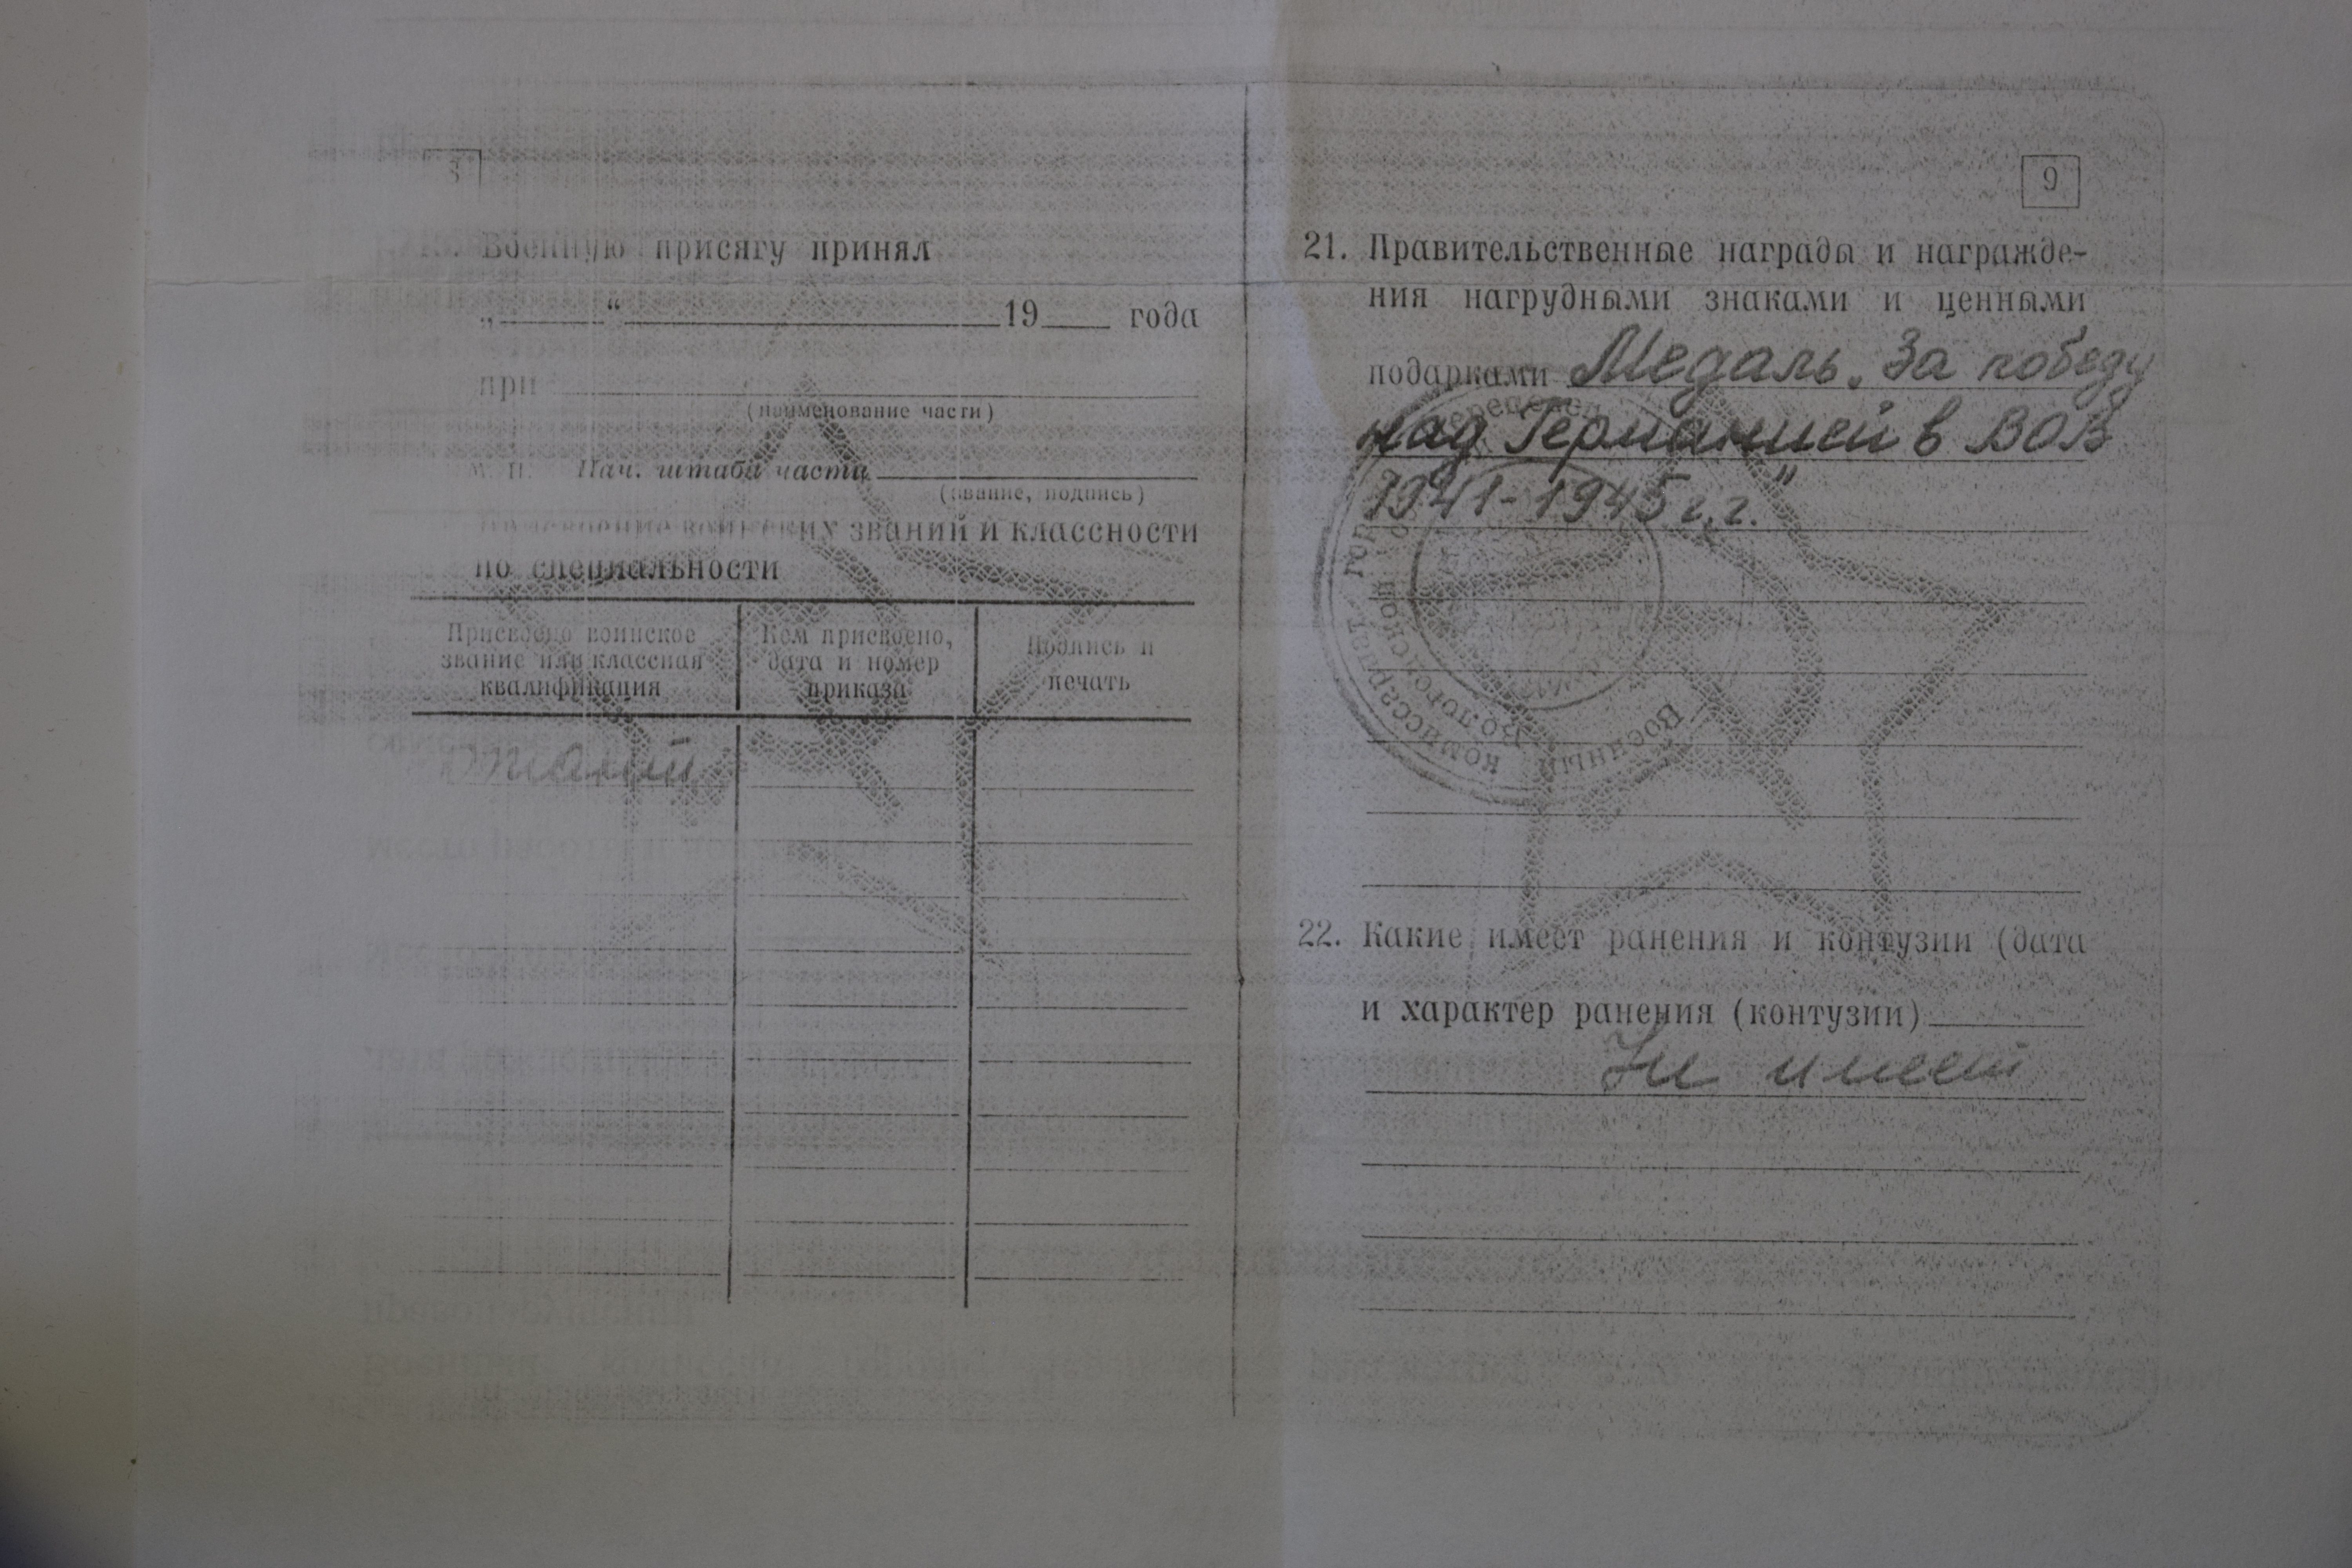 Военную присягу принял
„ “ 19 года
при
(наименование части)
М. П. Нач. штаба части
(звание, подпись)
званий и классности
по специальности
Присвоено воинское звание или классная квалификация
Кем присвоено, дата и номер приказа
Подпись и печать
9
21. Правительственные награды и награжде-
ния нагрудными знаками и ценными
подарками Медаль „За победу
над Германией в ВОВ
1941-1945 г.г."
Военный
комиссариат
Вологодской
22. Какие имеет ранения и контузии (дата
и характер ранения (контузии)
Не имеет